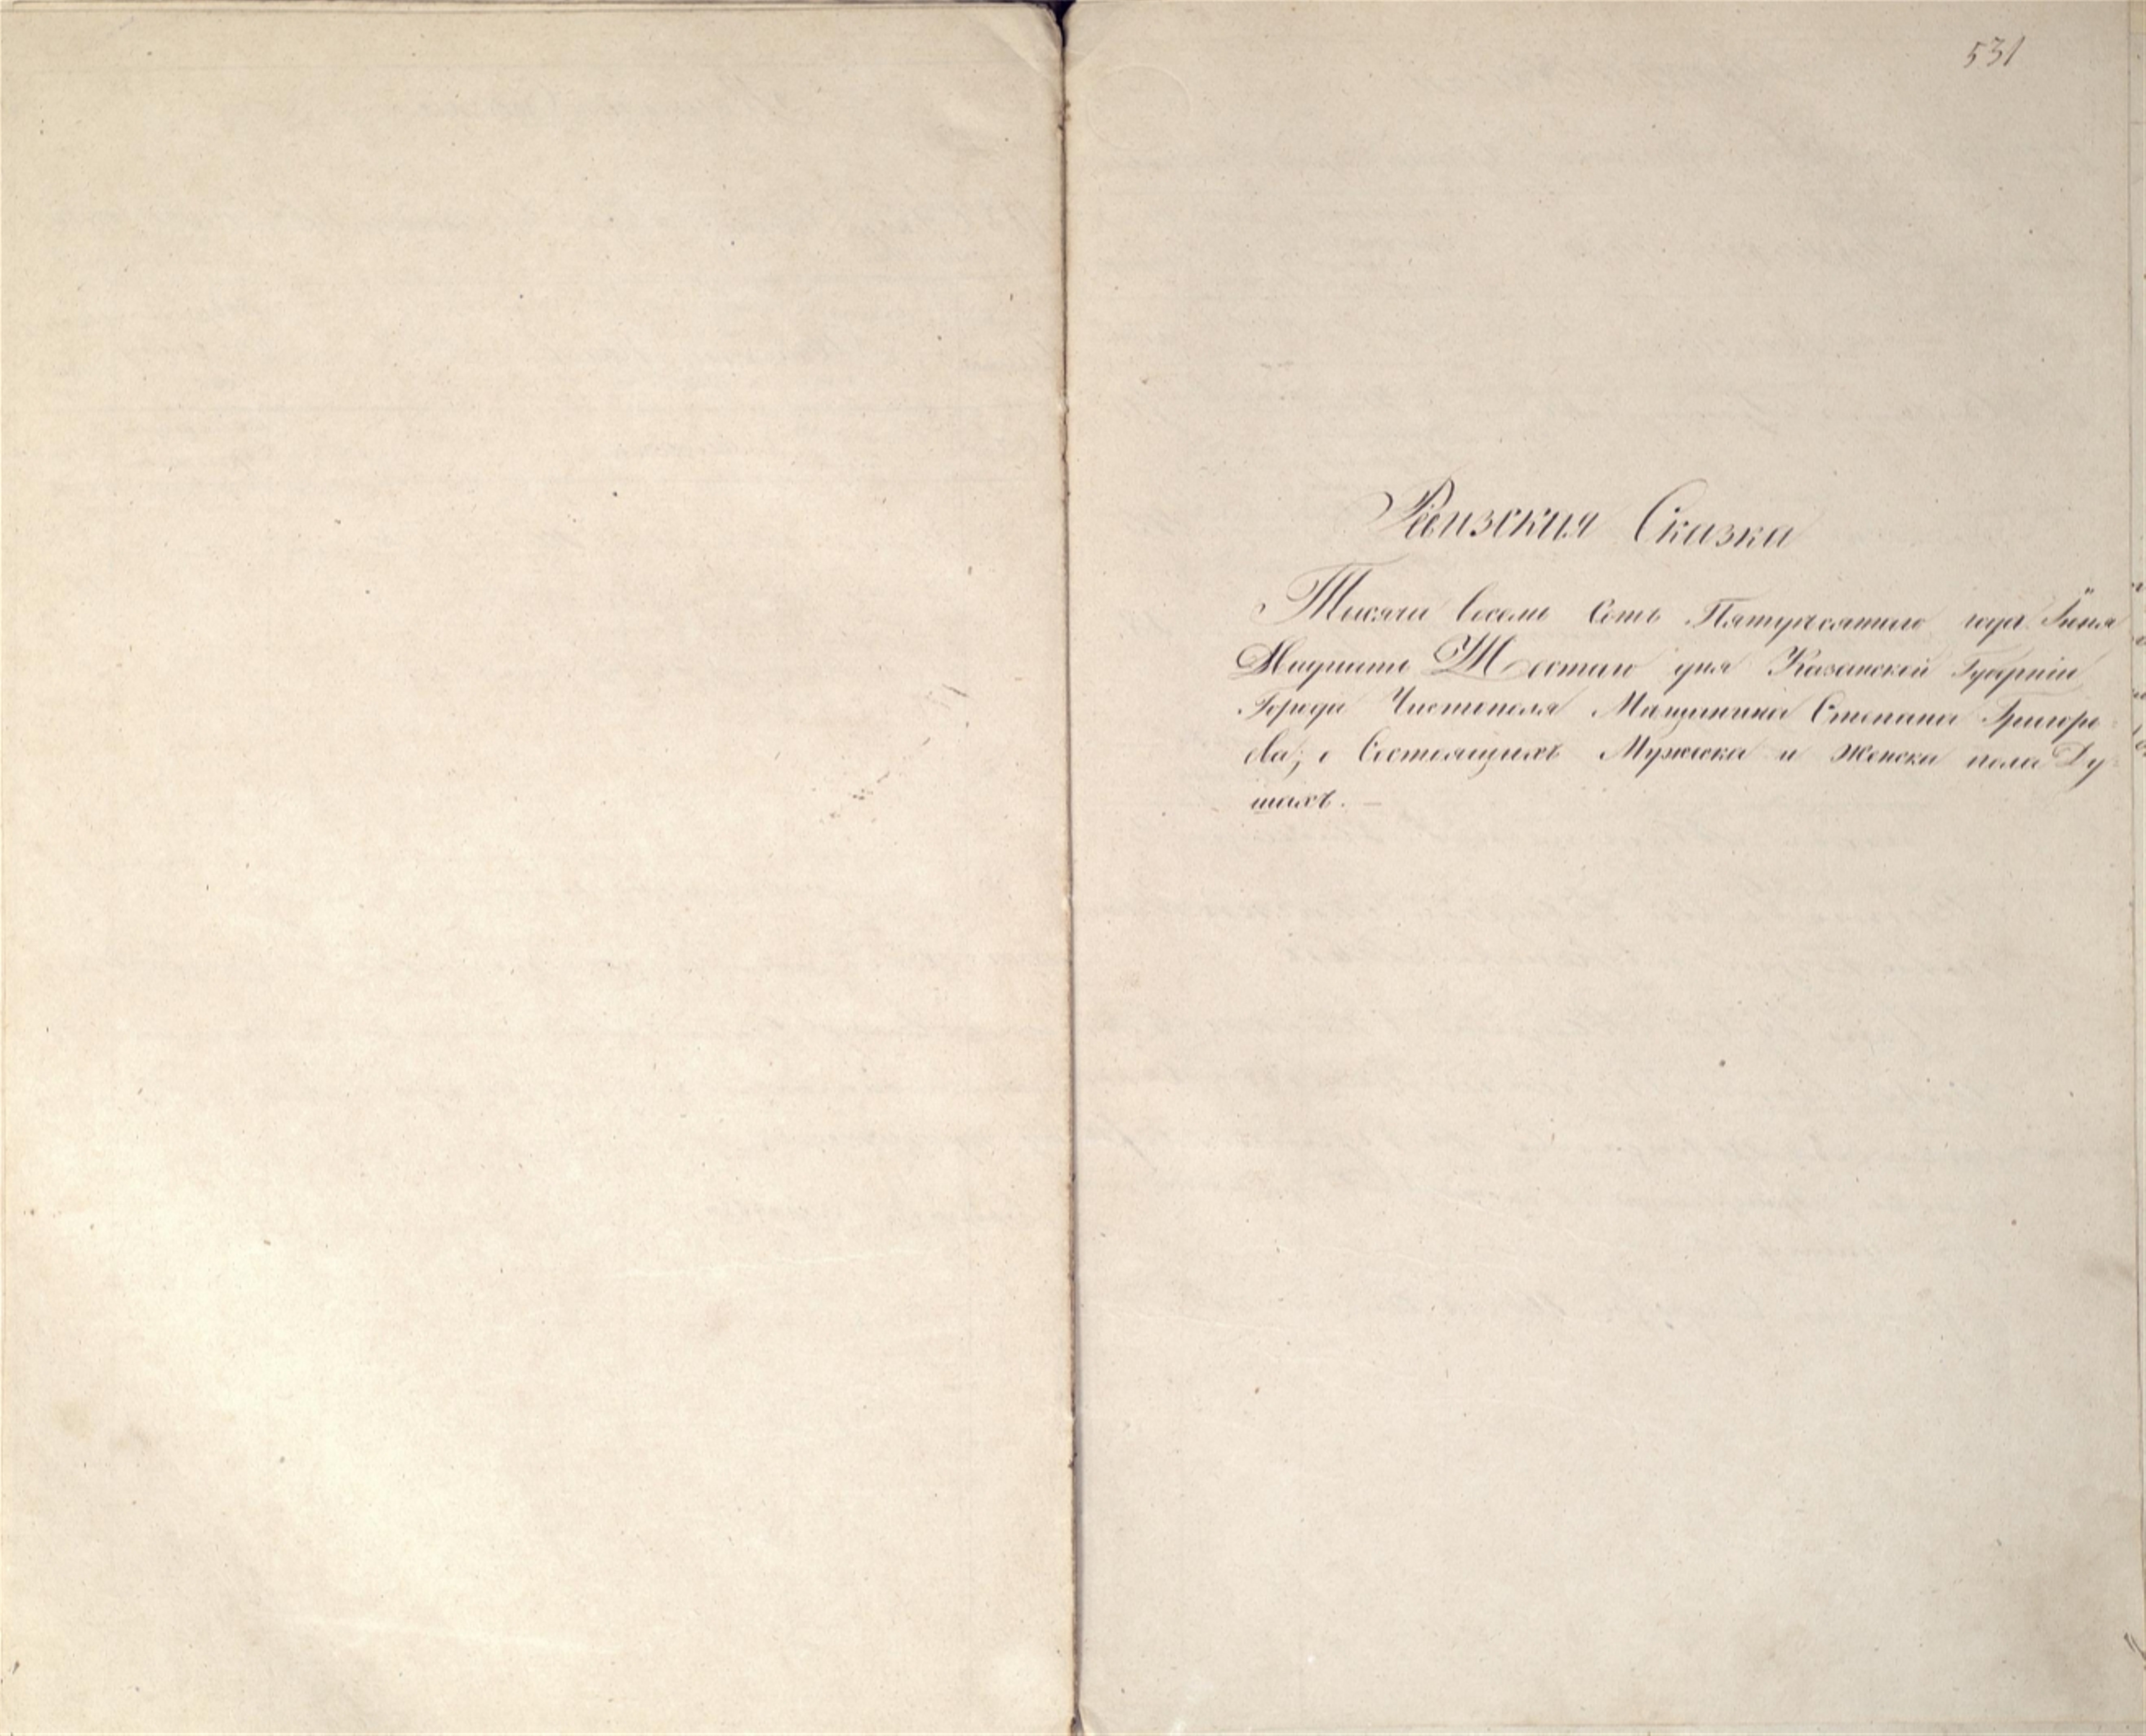 531
Ревизския Сказка
Тысячи восемь Сотъ Пятидесятаго года Iюня
Двадцать Шестаго дня Казанской Губернiи
Города Чистополя Мѣщанина Степана Григорь-
ева; о Состоящихъ Мужска и Женска пола Ду-
шахъ. —